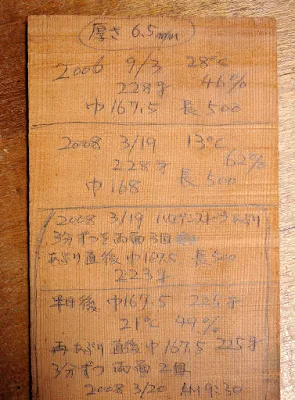 (厚さ 6.5mm)
2006 9/3 28℃
228g 46%
巾167.5 長500
2008 3/19 13℃
228g 62%
巾168 長500
2008 3/19 ハロゲンストーブあぶり
3分ずつ両面3回
あぶり直後 巾167.5 長500
223g
半日後 巾167.5 225g
21℃ 49%
再あぶり直後 巾167.5 225g
3分ずつ 両面2回
2008 3/20 AM9:30